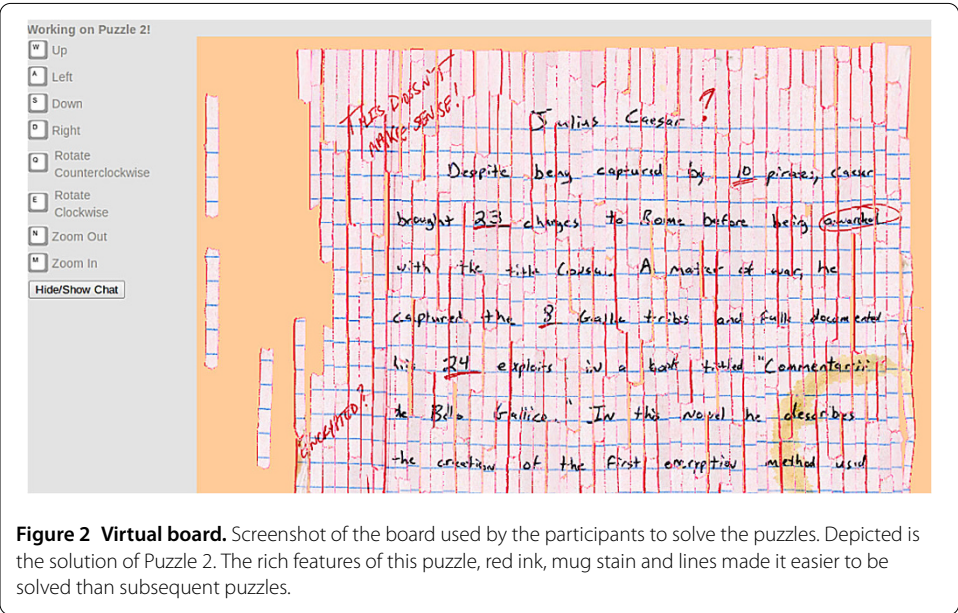 Working on Puzzle 2!
W Up
A Left
S Down
D Right
Q Rotate
Counterclockwise
E Rotate
Clockwise
N Zoom Out
M Zoom In
Hide/Show Chat
THIS DOESN'T
MAKE SENSE!
Julius Caesar ?
Despite being captured by 10 pirates, Caesar
brought 23 charges to Rome before being awarded
with the title Consul. A master of war, he
captured the 8 Gallic tribes and fully documented
his 24 exploits in a book titled "Commentarii
ENCRYPTED?
de Bello Gallico." In this novel he describes
the creation of the first encryption method used
Figure 2 Virtual board. Screenshot of the board used by the participants to solve the puzzles. Depicted is
the solution of Puzzle 2. The rich features of this puzzle, red ink, mug stain and lines made it easier to be
solved than subsequent puzzles.